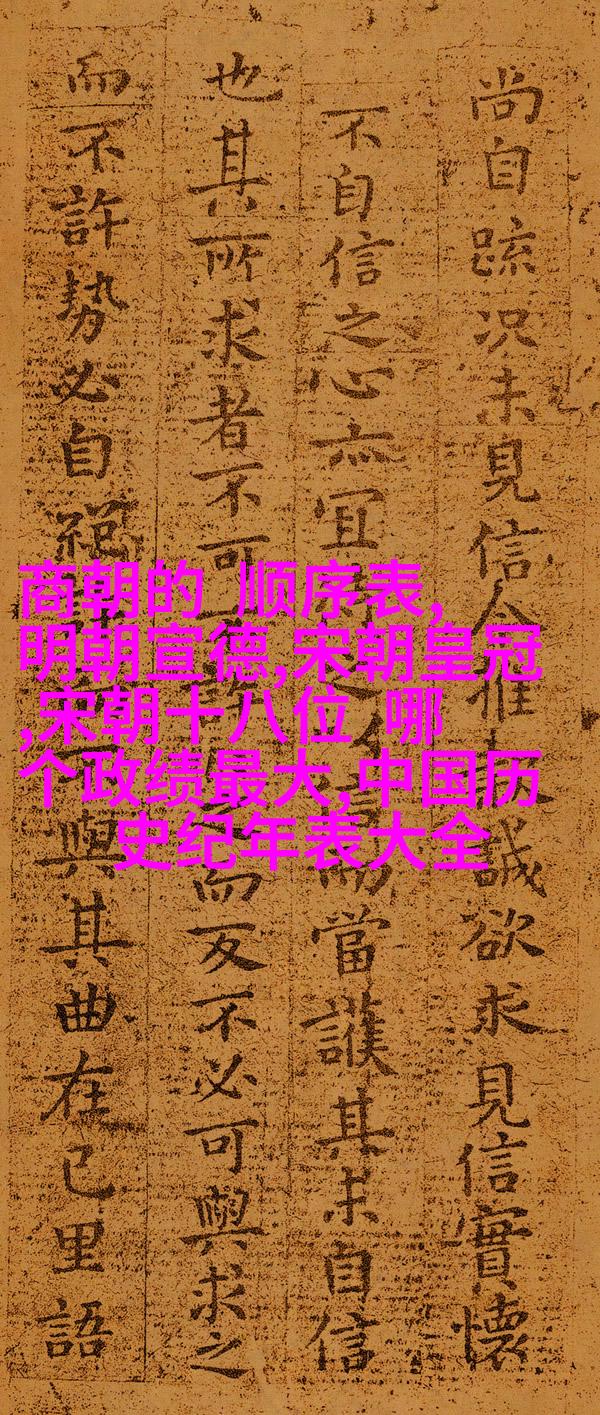 尚自疏況未見信今推誠欲求見信實懷
不自信之心亦宜當護其未自信
也其所求者不可而反不必可與求之
而不許勢必自絕與其曲在己里語
商朝的 顺序表,
明朝宣德,宋朝皇冠
,宋朝十八位 哪
个政绩最大,中国历
史纪年表大全